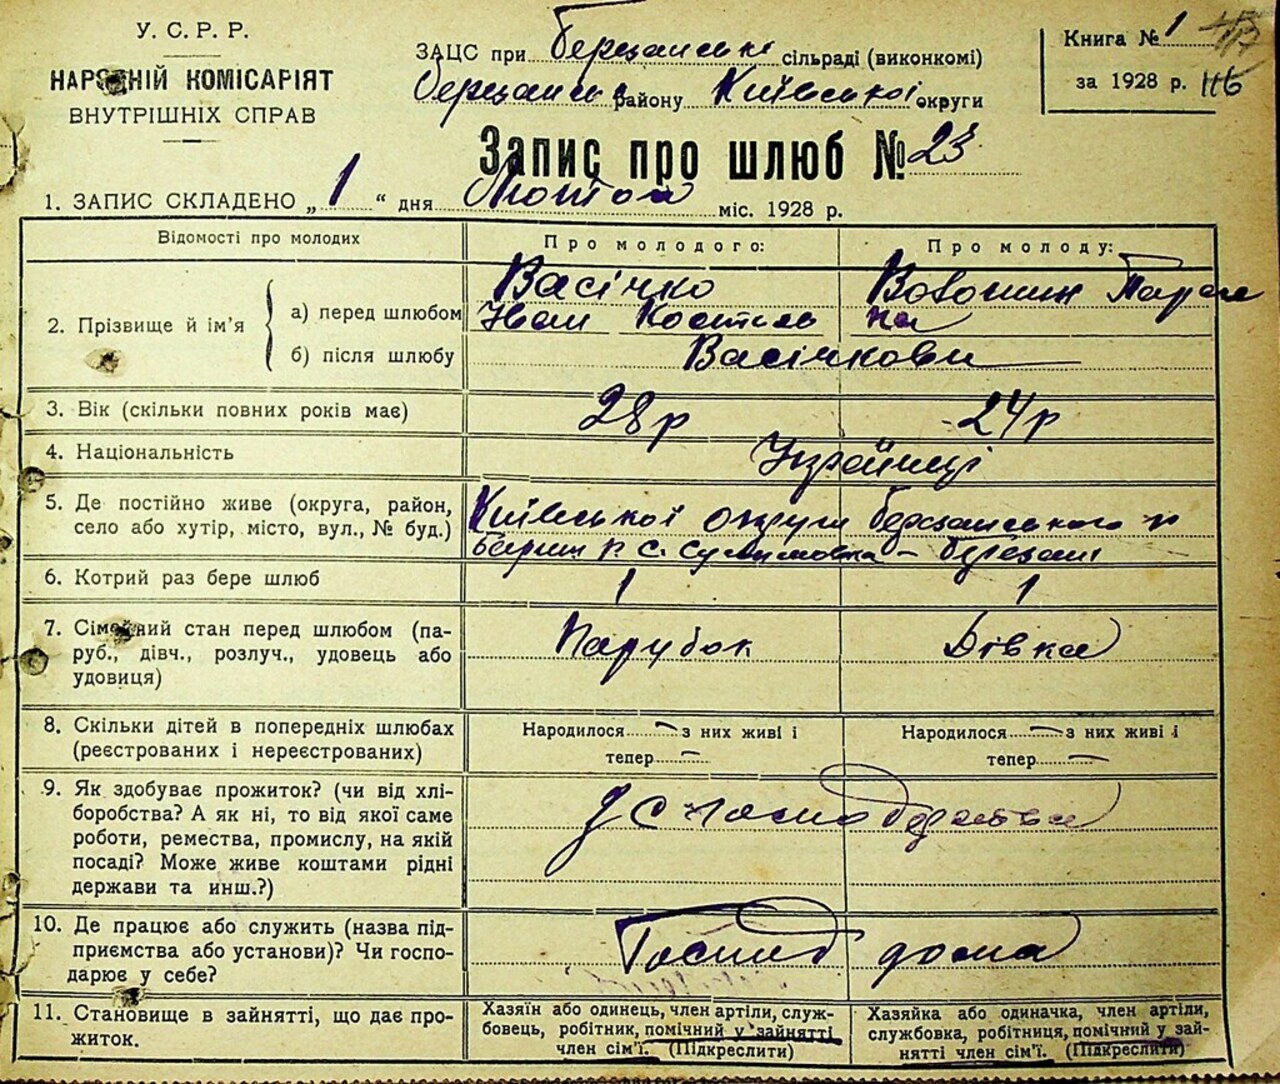 У. С. Р. Р.
НАРОДНІЙ КОМІСАРІЯТ
ВНУТРІШНІХ СПРАВ
ЗАЦС при Березанські сільраді (виконкомі)
Березанськ району Київської округи
Книга № 1
за 1928 р. 116
Запис про шлюб № 23
1. ЗАПИС СКЛАДЕНО „ 1 “ дня Лютого міс. 1928 р.
Відомості про молодих
Про молодого:
Про молоду:
2. Прізвище й ім'я
а) перед шлюбом
Васічко
Іван Костьов
Волошин Парас
ка
б) після шлюбу
Васічкови
3. Вік (скільки повних років має)
28 р
24 р
4. Національність
Українці
5. Де постійно живе (округа, район,
село або хутір, місто, вул., № буд.)
Київської округи Березанського р
Бориш р. С. Сулимовка – Березані
6. Котрий раз бере шлюб
1
1
7. Сімейний стан перед шлюбом (па-
руб., дівч., розлуч., удовець або
удовиця)
Парубок
Дівка
8. Скільки дітей в попередніх шлюбах
(реєстрованих і нереєстрованих)
Народилося — з них живі і
тепер —
Народилося — з них живі і
тепер —
9. Як здобуває прожиток? (чи від хлі-
боробства? А як ні, то від якої саме
роботи, ремества, промислу, на якій
посаді? Може живе коштами рідні
держави та инш.?)
З с господарства
10. Де працює або служить (назва під-
приємства або установи)? Чи госпо-
дарює у себе?
Господ дома
11. Становище в зайнятті, що дає про-
житок.
Хазяїн або одинець, член артіли, служ-
бовець, робітник, помічний у зайнятті
член сім'ї. (Підкреслити)
Хазяйка або одиначка, член артіли,
службовка, робітниця, помічний у зай-
нятті член сім'ї. (Підкреслити)